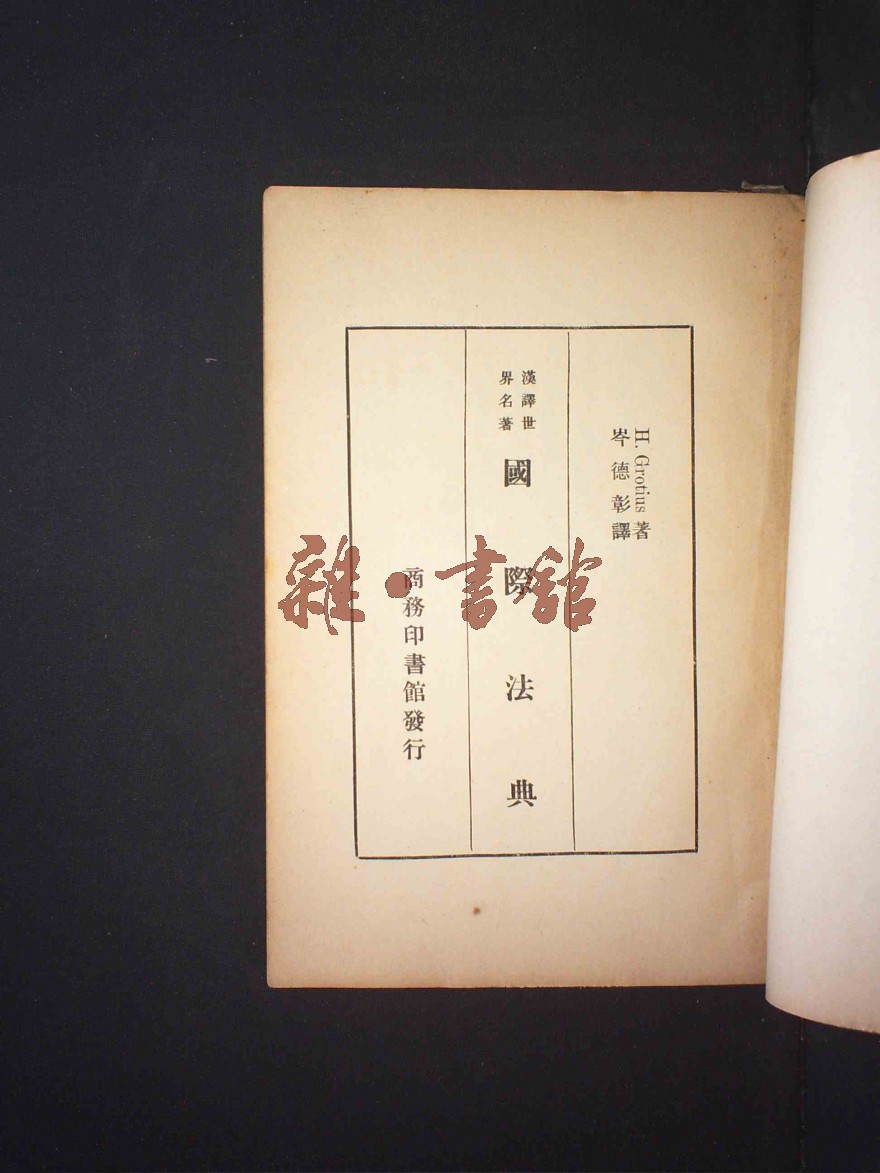 H. Grotius著
岑德彰譯
漢譯世
界名著
國際法典
商務印書館發行
雜·書館